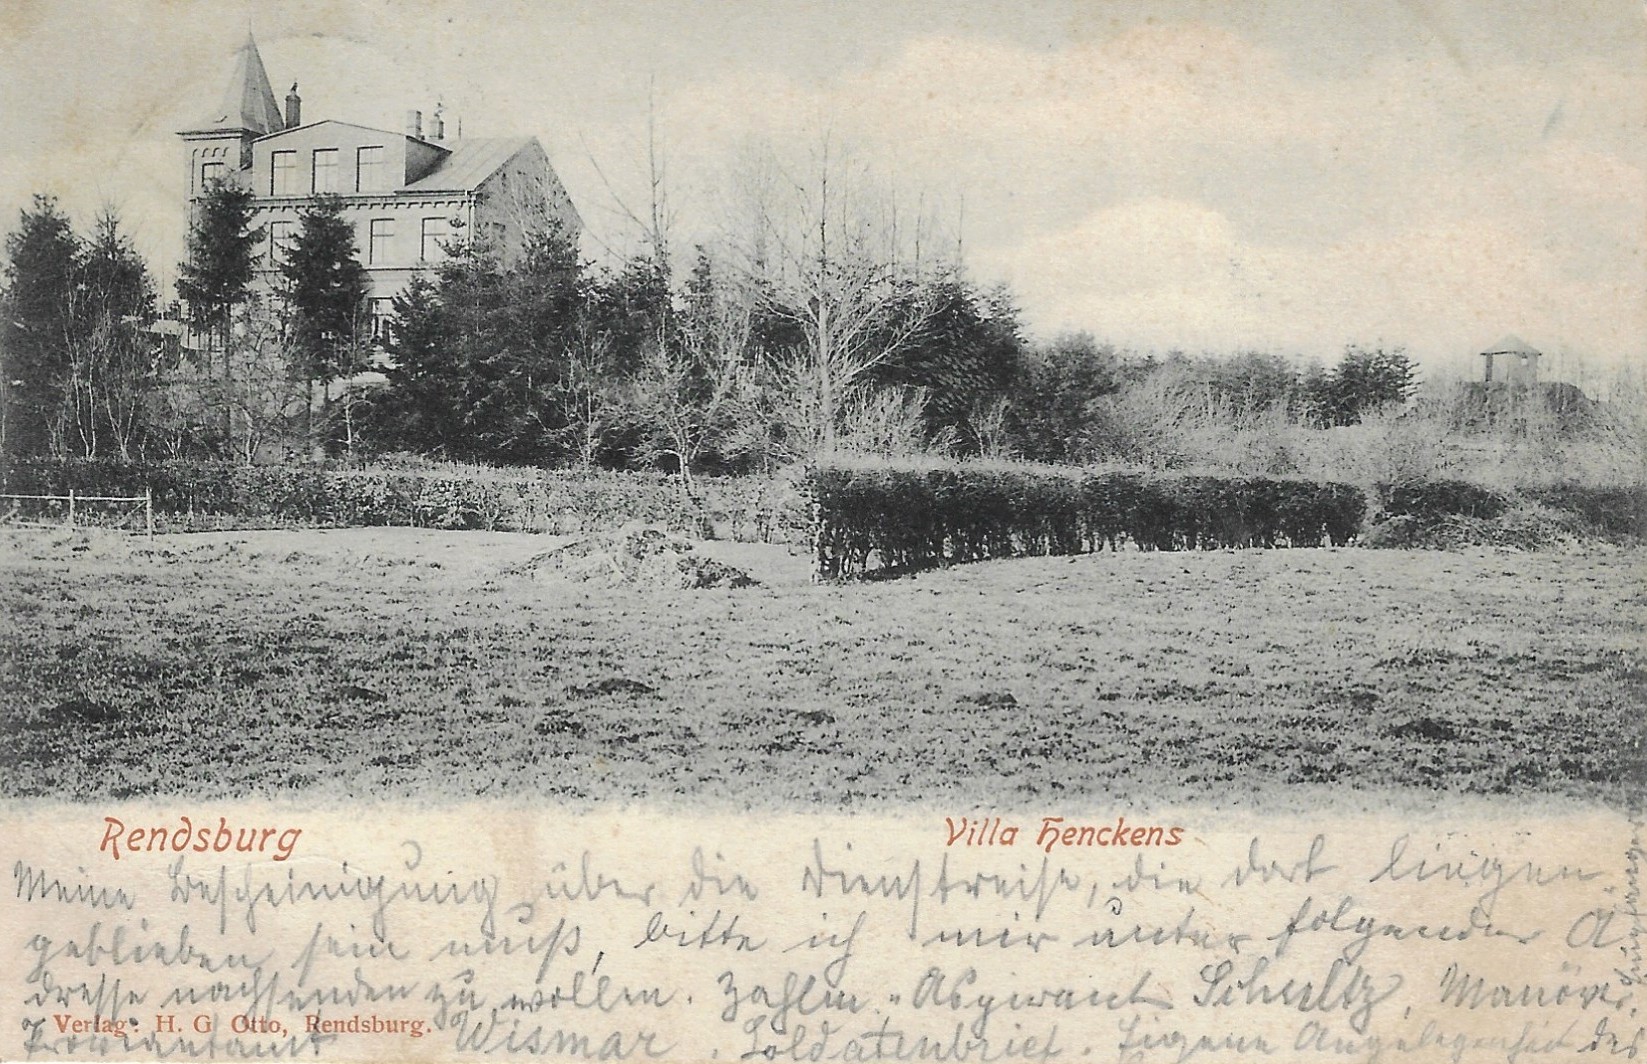 Rendsburg
Villa Henckens
Meine Bescheinigung über die Dienstreise, die dort liegen
geblieben sein muß, bitte ich mir unter folgender A
dresse nachsenden zu wollen. Zahlm. Aspirant Schultz, Manöver
Verlag: H. G. Otto, Rendsburg.
Proviantamt Wismar. Soldatenbrief. Eigene Angelegenheit des
Empfängers